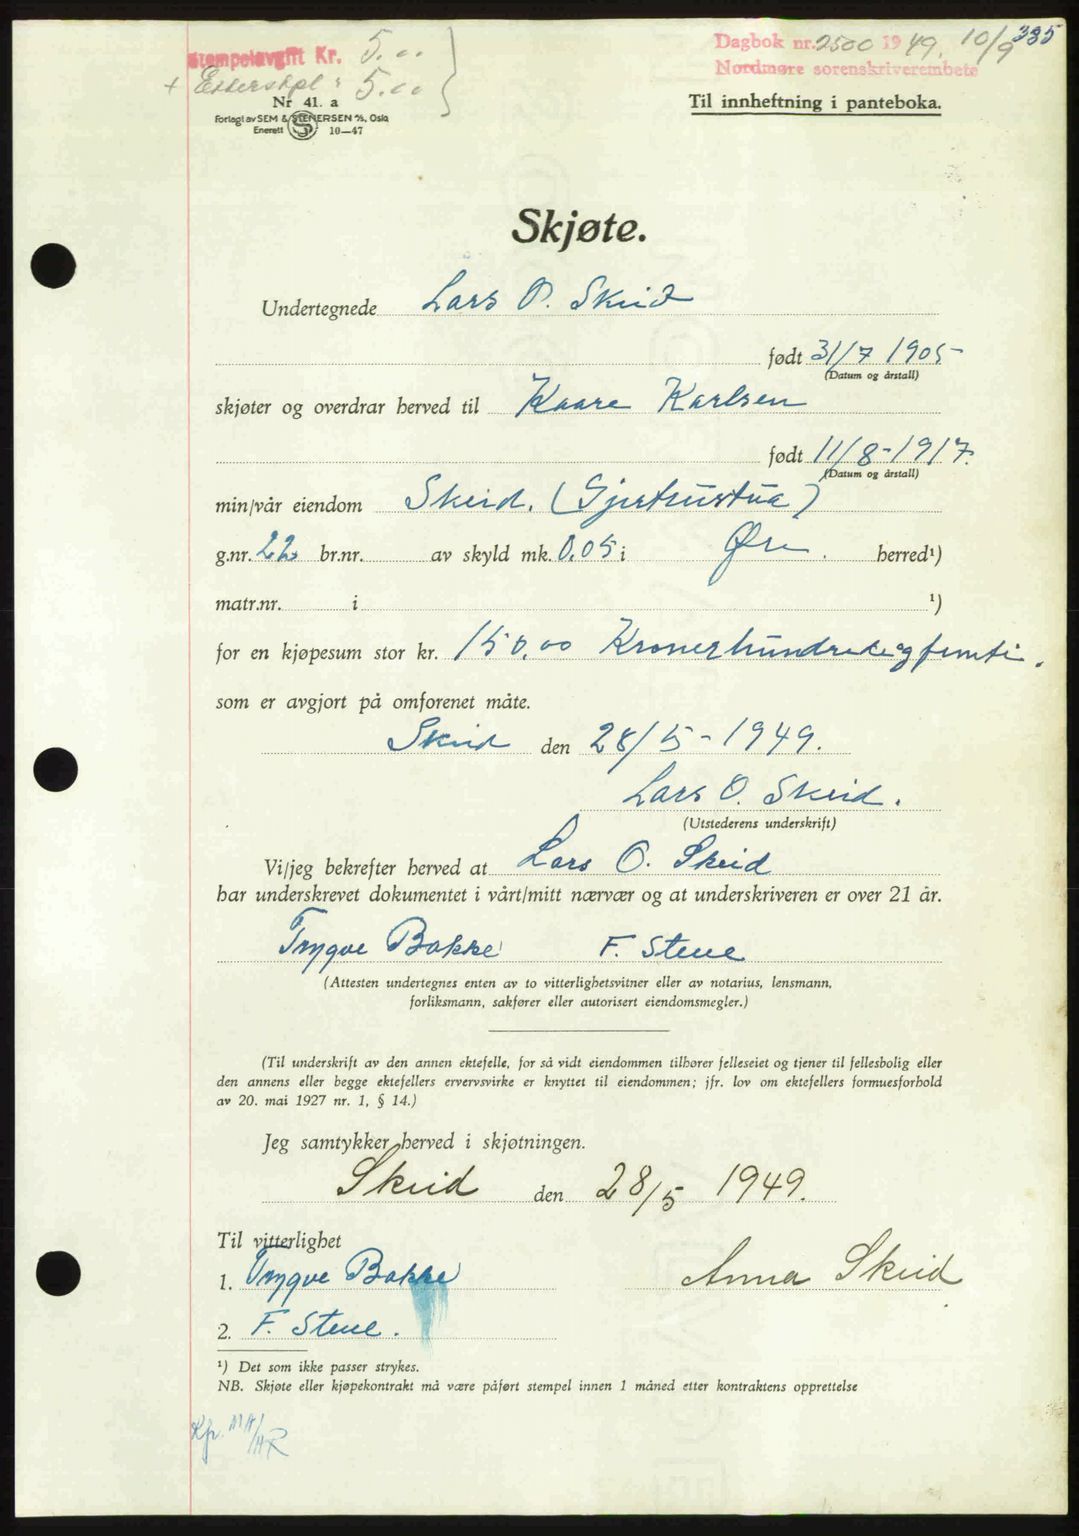 Stempelavgift Kr. 5.00
+ Etterstpl: 5.00
Dagbok nr. 2500 1949. 10/9 335
Nordmøre sorenskriverembete
Nr 41. a
Forlagt av SEM & STENERSEN A/S, Oslo
Enerett S 10—47
Til innheftning i panteboka.
Skjøte.
Undertegnede Lars O. Skeid
født 31/7 1905
(Datum og årstall)
skjøter og overdrar herved til Kaare Karlsen
født 11/8-1917.
(Datum og årstall)
min/vår eiendom Skeid. (Gjertrustua)
g.nr. 22 br.nr. av skyld mk. 0.05 i Øre. herred¹)
matr.nr. i ¹)
for en kjøpesum stor kr. 150.00 Kronerhundredeogfemti.
som er avgjort på omforenet måte.
Skeid den 28/5-1949.
Lars O. Skeid.
(Utstederens underskrift)
Vi/jeg bekrefter herved at Lars O. Skeid
har underskrevet dokumentet i vårt/mitt nærvær og at underskriveren er over 21 år.
Trygve Bakke F. Stene
(Attesten undertegnes enten av to vitterlighetsvitner eller av notarius, lensmann,
forliksmann, sakfører eller autorisert eiendomsmegler.)
(Til underskrift av den annen ektefelle, for så vidt eiendommen tilhører felleseiet og tjener til fellesbolig eller
den annens eller begge ektefellers ervervsvirke er knyttet til eiendommen; jfr. lov om ektefellers formuesforhold
av 20. mai 1927 nr. 1, § 14.)
Jeg samtykker herved i skjøtningen.
Skeid den 28/5 1949.
Til vitterlighet
1. Trygve Bakke Anna Skeid
2. F. Stene.
¹) Det som ikke passer strykes.
NB. Skjøte eller kjøpekontrakt må være påført stempel innen 1 måned etter kontraktens opprettelse